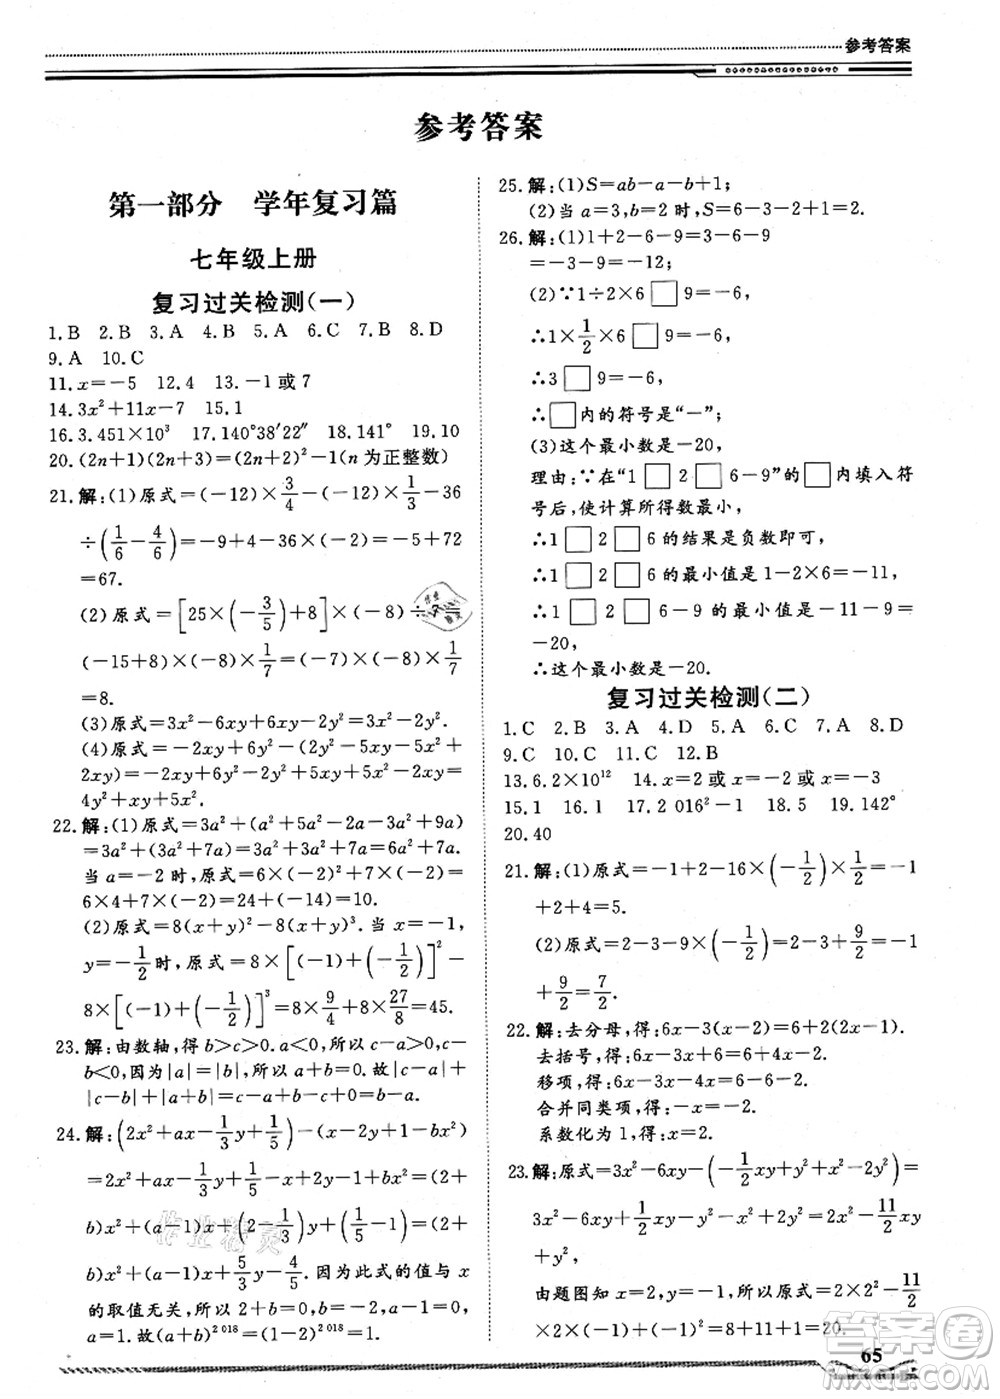 参考答案
参考答案
第一部分 学年复习篇
七年级上册
复习过关检测(一)
1.B 2.B 3.A 4.B 5.A 6.C 7.B 8.D
9.A 10.C
11.x=-5 12.4 13.-1或7
14.3x²+11x-7 15.1
16.3.451×10³ 17.140°38′22″ 18.141° 19.10
20.(2n+1)(2n-1)=(2n)²-1(n为正整数)
21.解:(1)原式=(-12)×3/4-(-12)×1/3-36
÷(1/6-4/6)=-9+4-36×(-2)=-5+72
=67.
(2)原式=[25×(-3/5)+8]×(-8)÷7=
(-15+8)×(-8)×1/7=(-7)×(-8)×1/7
=8.
(3)原式=3x²-6xy+6xy-2y²=3x²-2y².
(4)原式=7x²y-(2x²y-5x²-4y²+2x²+
2xy)=7x²y-2x²y+5x²+4y²-2x²-2xy=
4y²+xy+5x².
22.解:(1)原式=3a²+(a²+5a²-2a-3a²+9a)
=3a²+(3a²+7a)=3a²+3a²+7a=6a²+7a.
当a=-2时,原式=6×(-2)²+7×(-2)=
6×4+7×(-2)=24+(-14)=10.
(2)原式=8(x+y)²-8(x+y)³.当x=-1,
y=-1/2时,原式=8×[(-1)+(-1/2)]²-
8×[(-1)+(-1/2)]³=8×9/4+8×27/8=45.
23.解:由数轴,得b>c>0.a<0,所以a-c<0,c-
b<0.因为|a|=|b|,所以a+b=0.故|a-c|+
|c-b|+|a+b|=c-a+b-c+0=b-a.
24.解:(2x²+ax-1/3y+1/5)-(x-2y+1-bx²)
=2x²+ax-1/3y+1/5-x+2y-1+bx²=(2+
b)x²+(a-1)x+(2-1/3)y+(1/5-1)=(2+
b)x²+(a-1)x+5/3y-4/5.因为此式的值与x
的取值无关,所以2+b=0,a-1=0.则b=-2,
a=1.故(a+b)²⁰¹⁸=(1-2)²⁰¹⁸=1.
25.解:(1)S=ab-a-b+1;
(2)当a=3,b=2时,S=6-3-2+1=2.
26.解:(1)1+2-6-9=3-6-9
=-3-9=-12;
(2)∵1÷2×6□9=-6,
∴1×1/2×6□9=-6,
∴3□9=-6,
∴□内的符号是“-”;
(3)这个最小数是-20,
理由:∵在“1□2□6-9”的□内填入符
号后,使计算所得数最小,
∴1□2□6的结果是负数即可,
∴1□2□6的最小值是1-2×6=-11,
∴1□2□6-9的最小值是-11-9=
-20,
∴这个最小数是-20.
复习过关检测(二)
1.C 2.B 3.A 4.D 5.A 6.C 7.A 8.D
9.C 10.C 11.C 12.B
13.6.2×10¹² 14.x=2或x=-2或x=-3
15.1 16.1 17.2 016²-1 18.5 19.142°
20.40
21.解:(1)原式=-1+2-16×(-1/2)×1/2=-1
+2+4=5.
(2)原式=2-3-9×(-1/2)+9/2=2-3
+9/2+9/2=8.
22.解:去分母,得:6x-3(x-2)=6+2(2x-1).
去括号,得:6x-3x+6=6+4x-2.
移项,得:6x-3x-4x=6-6-2.
合并同类项,得:-x=-2.
系数化为1,得:x=2.
23.解:原式=3x²-6xy-(-1/2xy+y²+x²-2y²)=
3x²-6xy+1/2xy-y²-x²+2y²=2x²-11/2xy
+y²,
由题图知x=2,y=-1,所以原式=8×2-11/2
×2×(-1)+(-1)²=8+11+1=20.
65
答案卷